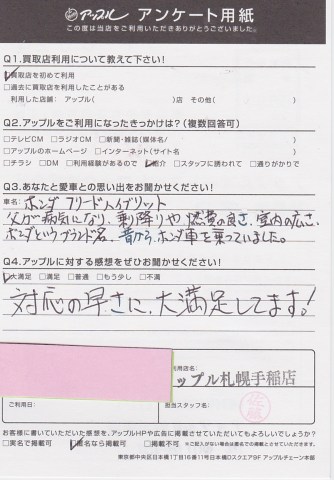 アップル アンケート用紙
この度は当店をご利用いただきありがとうございました。
Q1.買取店利用について教えて下さい!
買取店を初めて利用
□過去に買取店を利用したことがある
利用した店舗: アップル( )店 その他( )
Q2.アップルをご利用になったきっかけは?(複数回答可)
□テレビCM □ラジオCM □新聞・雑誌(媒体名/ )
□アップルのホームページ □インターネット(サイト名 )
□チラシ □DM □利用経験があるので 紹介 □スタッフに誘われて □通りがかりで
Q3.あなたと愛車との思い出をお聞かせください!
車名: ホンダ フリードハイブリット
父が病気になり、乗り降りや燃費の良さ、室内の広さ、
ホンダというブランド名、昔から、ホンダ車を乗っていました。
Q4.アップルに対する感想をぜひお聞かせください!
大満足 □満足 □普通 □もう少し □不満
対応の早さに、大満足してます!
利用店名:
ップル札幌手稲店
ご利用日:
担当スタッフ名:
佐藤
お客様に書いていただいた感想を、アップルHPや広告に掲載させていただいてもよろしいでしょうか?
□実名で掲載可 匿名なら掲載可 □掲載不可 ※ご記入がない場合は匿名での掲載とさせていただきます。
東京都中央区日本橋1丁目16番11号日本橋Dスクエア9F アップルチェーン本部